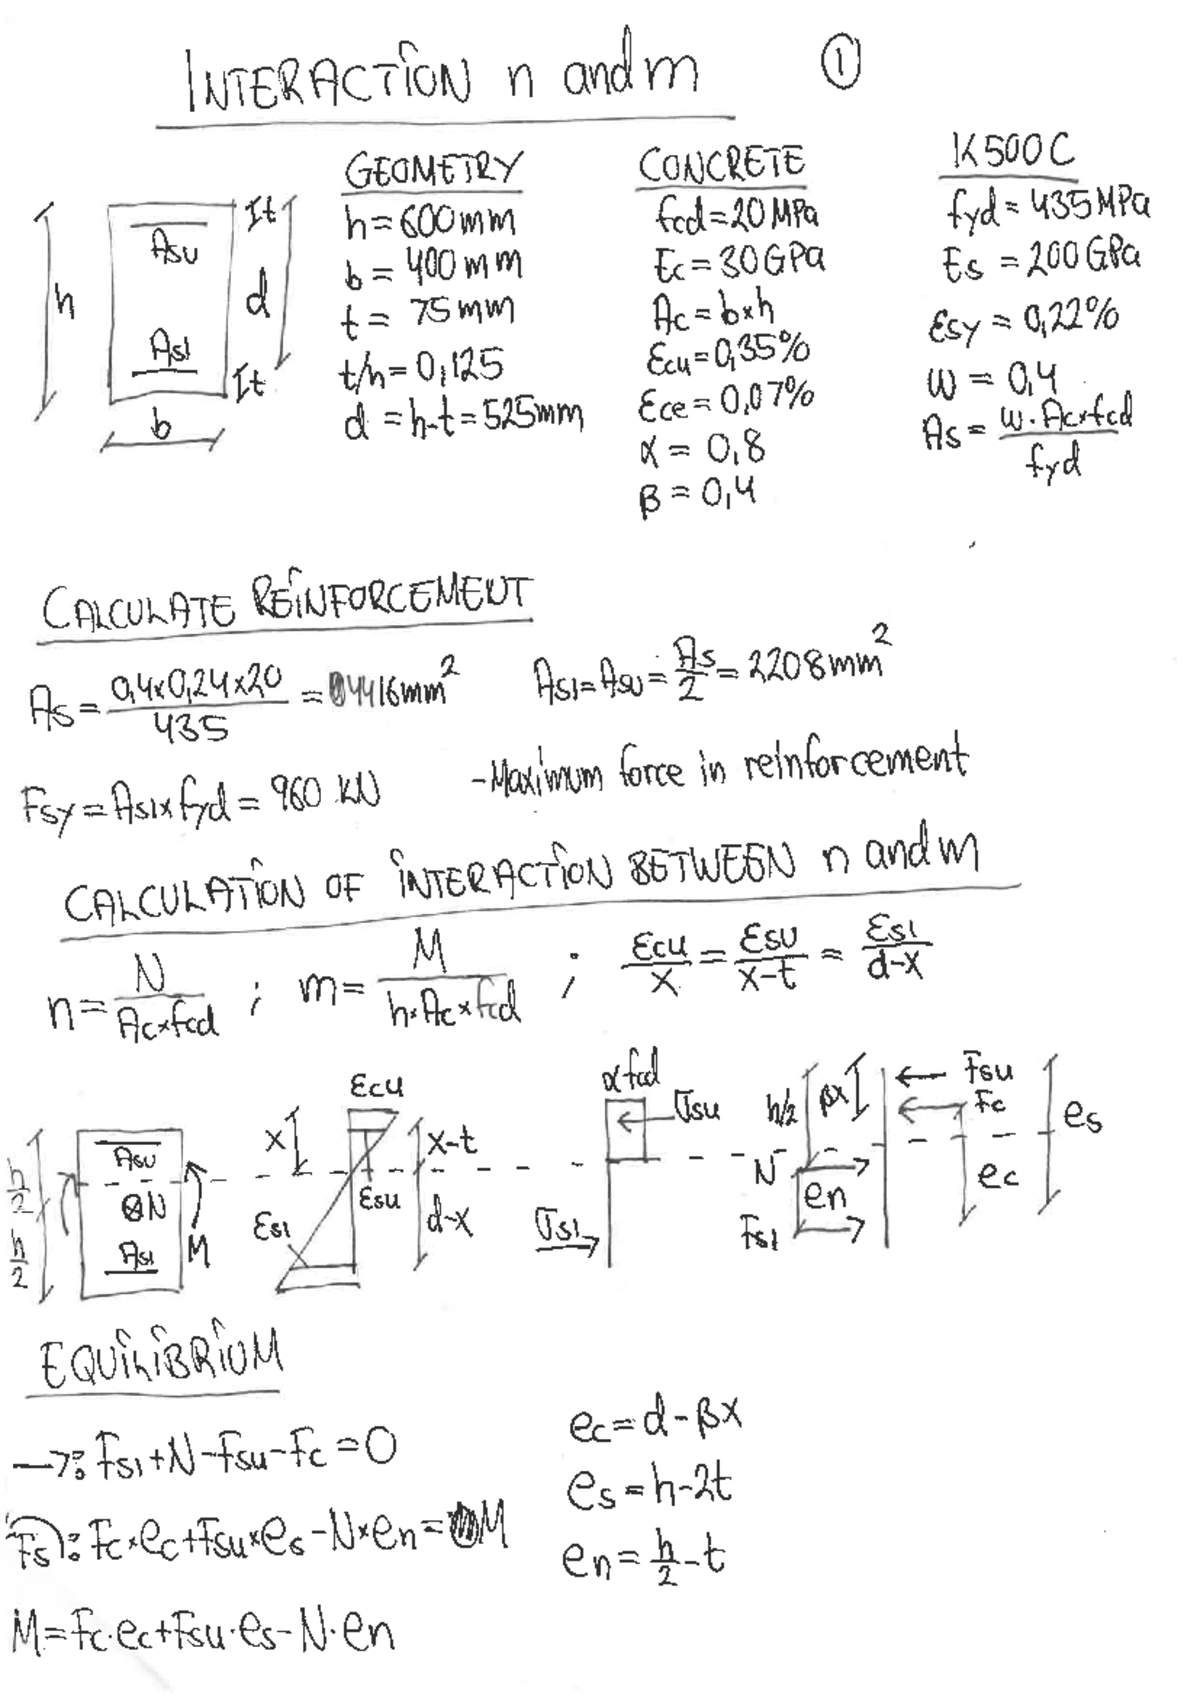 INTERACTION n and m ①
GEOMETRY
h = 600mm
b = 400mm
t = 75mm
t/h = 0,125
d = h-t = 525mm
CONCRETE
fcd = 20MPa
Ec = 30GPa
Ac = b×h
εcu = 0,35%
εce = 0,07%
α = 0,8
β = 0,4
K500C
fyd = 435MPa
Es = 200GPa
εsy = 0,22%
ω = 0,4
As = ω·Ac×fcd / fyd
Asu
As1
h
d
t
t
b
CALCULATE REINFORCEMENT
As = 0,4×0,24×20 / 435 = 4416mm² As1 = Asu = As/2 = 2208mm²
Fsy = As1×fyd = 960 kN - Maximum force in reinforcement
CALCULATION OF INTERACTION BETWEEN n and m
n = N / Ac×fcd ; m = M / h·Ac×fcd ; εcu/x = εsu/x-t = εs1/d-x
h/2
h/2
Asu
⊗N
As1
M
εcu
x
x-t
εsu
εs1
d-x
αfcd
σsu
σs1
h/2
βx
Fsu
Fc
es
N
en
ec
Fs1
EQUILIBRIUM
→: Fs1+N-Fsu-Fc = 0
Fs): Fc·ec+Fsu×es-N×en = M
M = Fc·ec+Fsu·es-N·en
ec = d-βx
es = h-2t
en = h/2-t